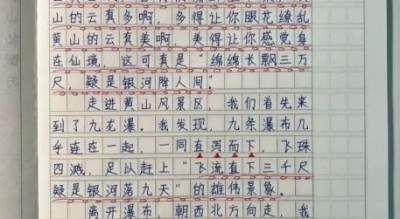 山的云真多啊，多得让你眼花缭乱
黄山的云真美啊，美得让你感觉身
在仙境，这可真是“绵绵长飘三万
尺，疑是银河降人间。”
走进黄山风景区，我们首先来
到了九龙瀑。我发现，九条瀑布几
乎连在一起，一同直泻而下，飞珠
四溅，足以赶上“飞流直下三千尺
疑是银河落九天”的雄伟景象。
离开瀑布，朝西北方向走，我